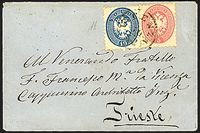 Al Venerando Fratello
F. Francesco M.ª da Vicenza
Cappuccino Architetto Ing.
Trieste